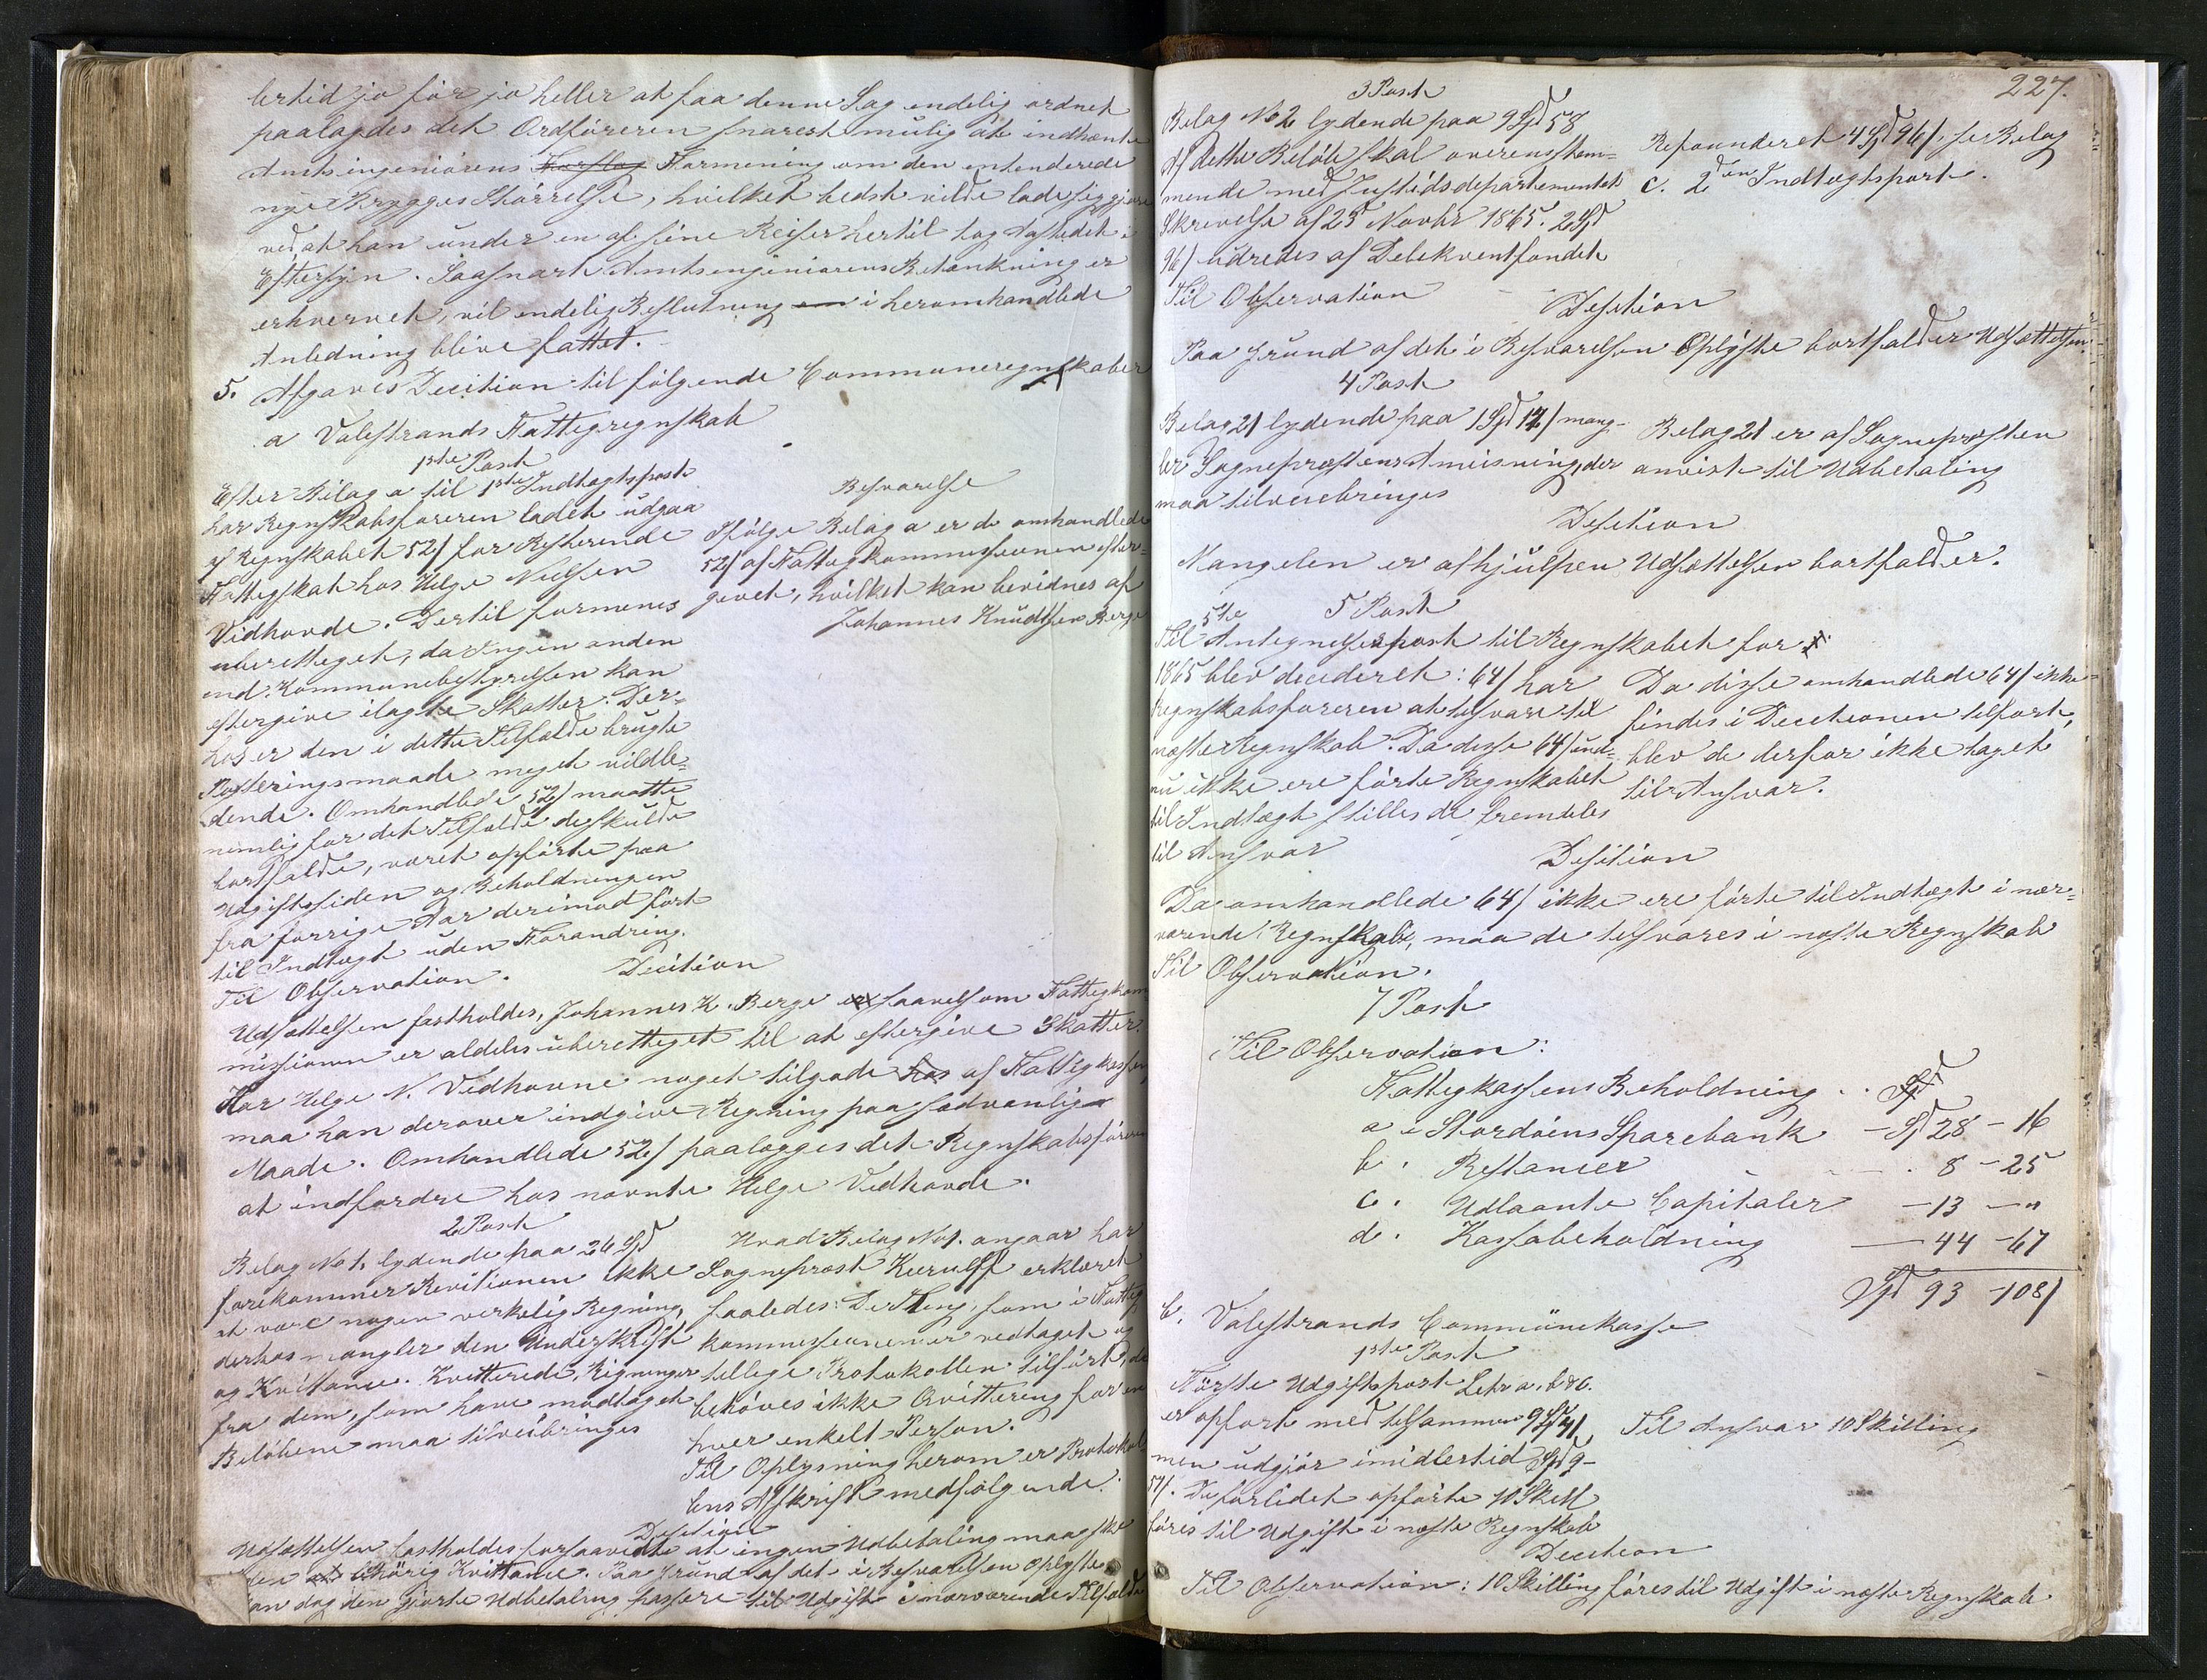 lertid jo før jo heller at faa denne Sag endelig ordnet
paalagdes det Ordføreren snarest mulig at indhente
Amtsingeniørens Forslag Formening om den intenderede
nye Brygges Størrelse, hvilket bedst vilde lade sig gjøre
ved, at han under en af sine Reiser hertil tog Aastedet i
Eftersyn. Saasnart Amtsingeniørens Betænkning er
erhvervet, vil endelig Beslutning i heromhandlede
Anledning blive fattet.
5. Afgaves Decition til følgende Communeregnskaber
a Valestrands Fattigregnskab
1ste Post
Efter Bilag a til 1ste Indtægtspost
har Regnskabsføreren ladet udgaa
af Regnskabet 52/ for Resterende
Fattigskat hos Helge Nielsen
Vidhovde. Dertil formenes
uberettiget, da Ingen anden
end Kommunebestyrelsen kan
eftergive ilagte Skatter. Der-
hos er den i dette Tilfælde brugte
Posteringsmaade meget vildle-
dende. Omhandlede 52/ maatte
nemlig for det Tilfælde de skulde
bortfalde, været opførte paa
Udgiftssiden og Beholdningen
fra forrige Aar derimod ført
til Indtægt uden Forandring.
Til Observation.
Besvarelse
Ifølge Belag a er de omhandlede
52/ af Fattigkommissionen efter-
givet, hvilket kan bevidnes af
Johannes Knudtsen Berge
Decition
Udsættelsen fastholdes, Johannes K. Berge er saavelsom Fattigkom
missionen er aldeles uberettiget til at eftergive Skatter.
Har Helge N. Vidhovne noget tilgode hos af Fattigkassen,
maa han derover indgive Regning paa sædvanlig
Maade. Omhandlede 52/ paalægges det Regnskabsføreren
at indfordre hos nævnte Helge Vidhovde.
2 Post
Belag No 1, lydende paa 26 Spd
forekommer Revitionen ikke
at være nogen verkelig Regning,
derhos mangler den Underskrift
og Kvittance. Kvitterede Regninger
fra dem, som have modtaget
Beløbene maa tilveiebringes
Hvad Bilag No 1. angaar har
Sogneprest Kierulff erklæret
saaledes: De Ting, som i Fattig
kommissionen er vedtaget og
tillige Protokollen tilført, de
behøves ikke Qvittering for en
hver enkelt Person.
Til Oplysning herom er Protokol
lens Afskrift medfølgende.
Desition
Udsættelsen fastholdes forsaavidt at ingen Udbetaling maa ske
uden at lihørig Kvittance. Paa Grund af det i Besvarelsen Oplyste
kan dog den gjorte Udbetaling passere til Udgift i nærværende Tilfælde
227.
3 Post
Belag No 2 lydende paa 9 Spd 58
Af dette Beløb skal overensstem-
mende med Justidsdepartementets
Skrivelse af 23d Novbr 1865. 2 Spd
96/ udredes af Delekventfondet
Til Observation
Refounderet 4 Spd 96/. se Belag
c. 2den Indtægtspost.
Desition
Paa Grund af det i Besvarelsen Oplyste bortfalder Udsættelsen.
4 Post
Belag 21 lydende paa 1 Spd 12/ mang-
ler Sogneprestens Anvisning, der
maa tilveiebringes
Belag 21 er af Sognepresten
anvist til Udbetaling
Desition
Mangelen er afhjulpen Udsættelsen bortfalder.
5 Post
Til 5te Antegnelsespost til Regnskabet for
1865 blev decideret: 64/ har
Regnskabsføreren at tilsvare til
næste Regnskab. Da disse 64/ end-
nu ikke ere førte Regnskabet
til Indtægt stilles de fremdeles
til Ansvar
Da disse omhandlede 64/ ikke
findes i Decitionen tilført,
blev de derfor ikke taget
til Ansvar.
Desition
Da omhandlede 64/ ikke ere førte til Indtægt i nær-
værende Regnskab, maa de tilsvares i næste Regnskab
Til Observation.
7 Post
Til Observation:
Fattigkassens Beholdning . . Spd
a i Stordøens Sparebank - Spd 28 - 16
b. Restancer . 8 - 25
c. Udlaante Capitaler - 13 - "
d. Kassabeholdning - 44 - 67
Spd 93 - 108/
b. Valestrands Communekasse
1ste Post
Første Udgiftspost Letra a, b & c.
er opført med tilsammen 9 Spd 41/
men udgjør imidlertid Spd 9-
51/. De forlidet opførte 10 Skill
føres til Udgift i næste Regnskab
Til Ansvar 10 Skilling
Decition
Til Observation: 10 Skilling føres til Udgift i næste Regnskab